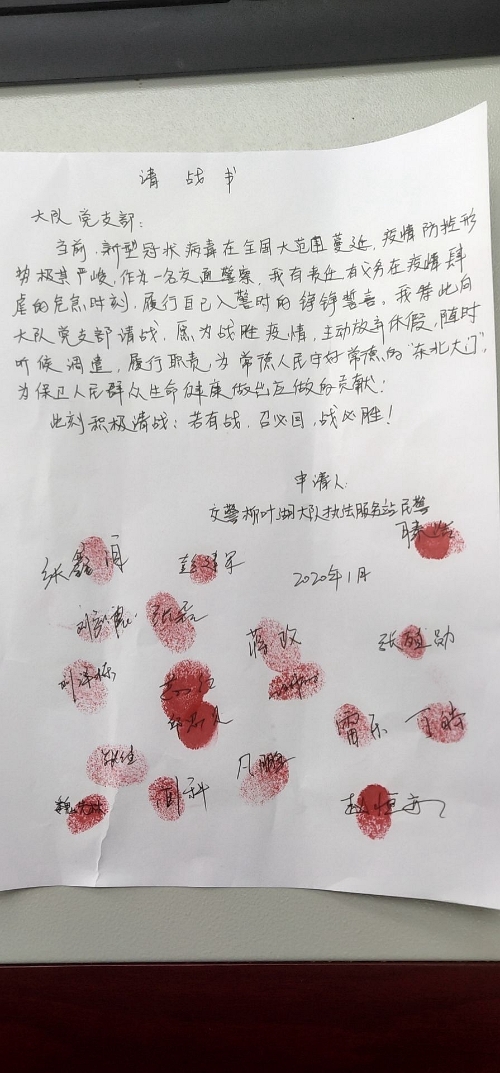 请战书
大队党支部:
当前,新型冠状病毒在全国大范围蔓延,疫情防控形
势极其严峻,作为一名交通警察,我有责任有义务在疫情肆
虐的危急时刻,履行自己入警时的铮铮誓言。我特此向
大队党支部请战,愿为战胜疫情,主动放弃休假,随时
听候调遣,履行职责,为常德人民守好常德的“东北大门”,
为保卫人民群众生命健康做出应做的贡献!
此刻积极请战:若有战,召必回,战必胜!
申请人:
交警柳叶湖大队执法服务站民警
张鑫 彭建军
2020年1月
张磊
蒋政
张 勋
雷乐 丁晴
凡鹏
刘科
赵恒